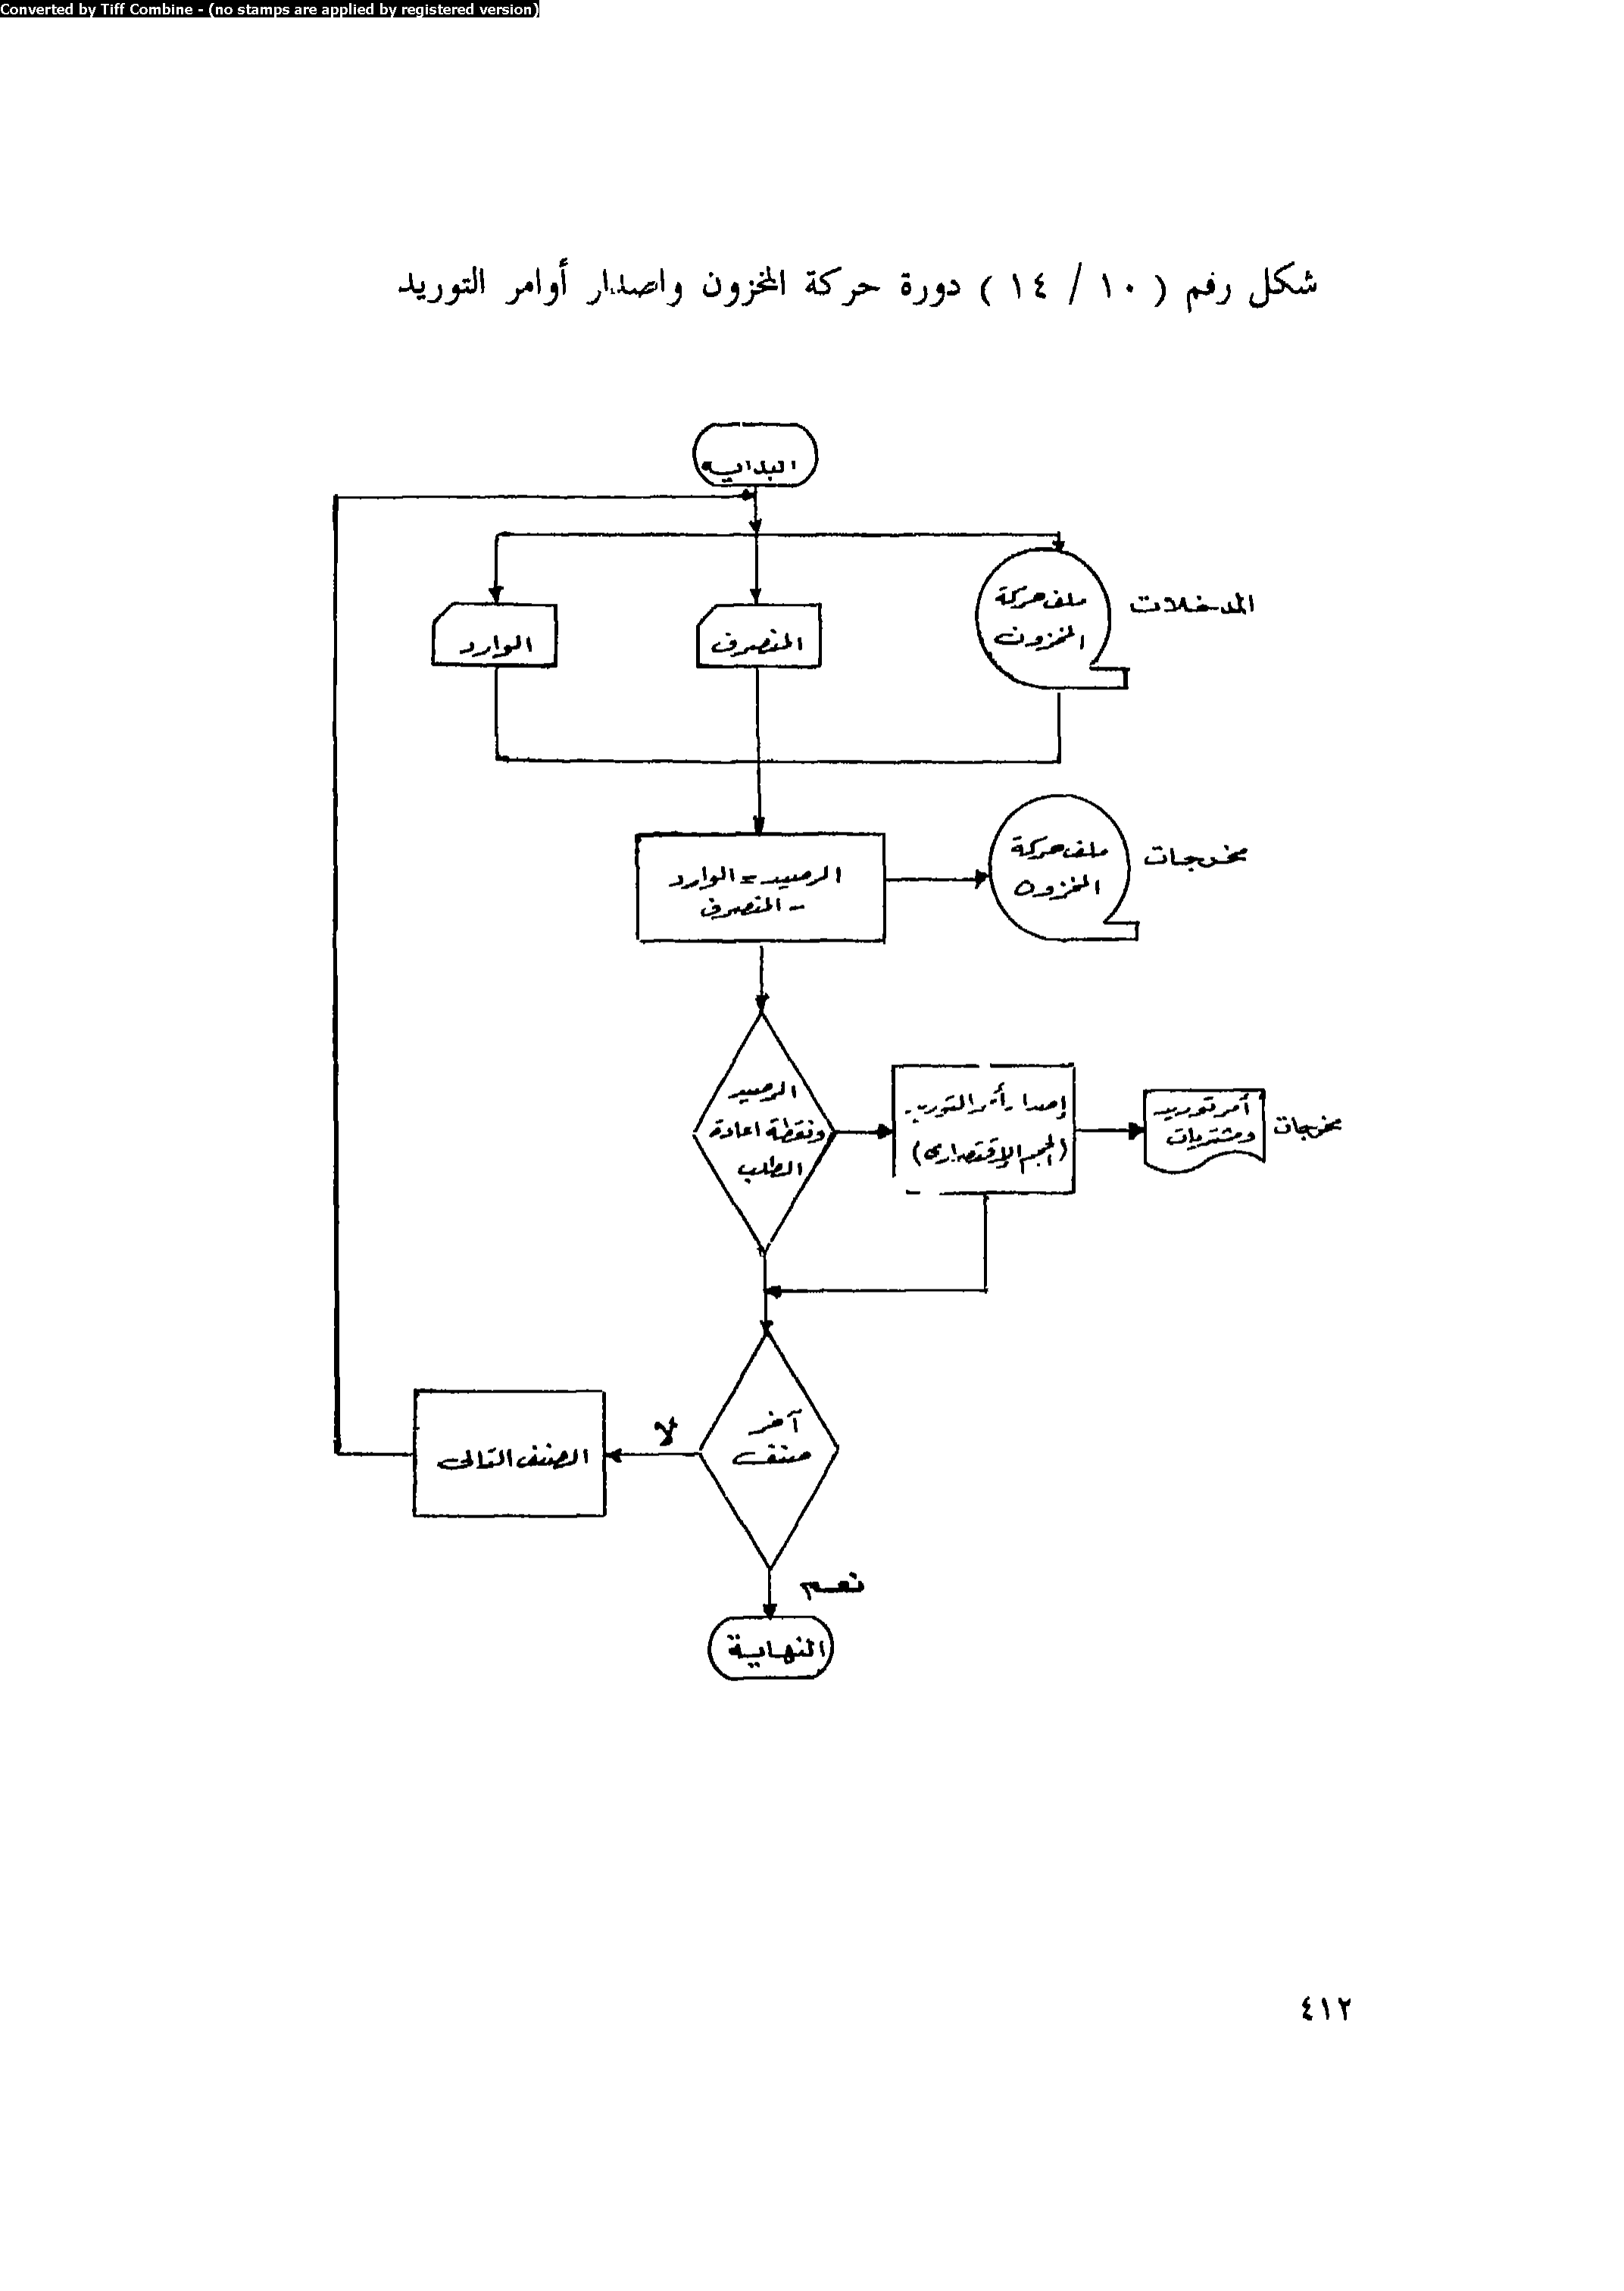 Converted by Tiff Combine - (no stamps are applied by registered version)
شكل رقم ( ١٠ / ١٤ ) دورة حركة المخزون واصدار أوامر التوريد
البدايه
ملف حركة
المخزون
المدخلات
المنصرف
الوارد
الرصيد = الوارد
- المنصرف
ملف حركة
المخزون
مخرجات
الرصيد
ونقطة اعادة
الطلب
إصدار أمر التوريد
(الحجم الإقتصادى)
أمر توريد
ومشتريات
مخرجات
آخر
صنف
لا
الصنف التالى
نعم
النهاية
٤١٢